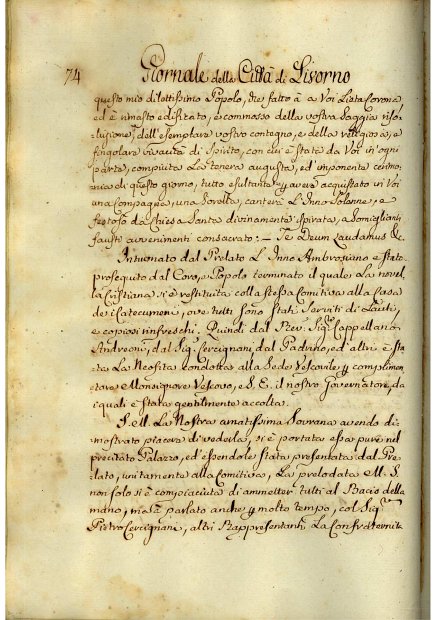 74 Giornale della Città di Livorno
questo mio dilettissimo Popolo, che fatto à a Voi lieta Corona,
ed è rimasto edificato, e commosso della vostra saggia riso-
luzione, dell'esemplare vostro contegno, e della religiosa, e
singolare vivacità di spirito, con cui è stata da Voi in ogni
parte, compiuta la tenera augusta, ed imponente cerimo-
nia di questo giorno, tutto esultante p avere acquistato in Voi
una Compagna, una Sorella, canterà L'Inno solenne, e
festoso da Chiesa Santa divinamente spirata, a somiglianti
fausti avvenimenti consacrato: — Te Deum Laudamus &c.
Intuonato dal Prelato L'Inno Ambrosiano e stato
proseguito dal Coro, e Popolo terminato il quale la novel-
la Cristiana si è restituita colla stessa Comitiva alla Casa
de i Catecumeni, ove tutti sono stati serviti di lauti,
e copiosi rinfreschi. Quindi dal Rev. Sig. Cappellano
Andreoni, dal Sig. Cercignani, dal Padrino, ed altri è sta-
ta La Neofita condotta alla Sede Vescovile p complimen-
tare Monsignore Vescovo, e S. E. il nostro Governatore, da
i quali è stata gentilmente accolta.
S. M. La Nostra amatissima Sovrana avendo di-
mostrato piacere di vederla, si è portata essa pure nel
precitato Palazzo, ed essendole stata presentata dal Pre-
lato, unitamente alla Comitiva, La prelodata M. S.
non solo si è compiaciuta di ammetter tutti al Bacio della
mano, mà à parlato anche p molto tempo, col Sig.
Pietro Cercignani, altri Rappresentanti La Confraternita